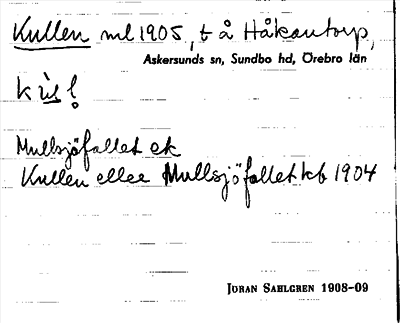 Kullen ml 1905, t å Håkantorp,
Askersunds sn, Sundbo hd, Örebro län
Mullsjöfallet ek
Kullen eller Mullsjöfallet kb 1904
Jöran Sahlgren 1908-09